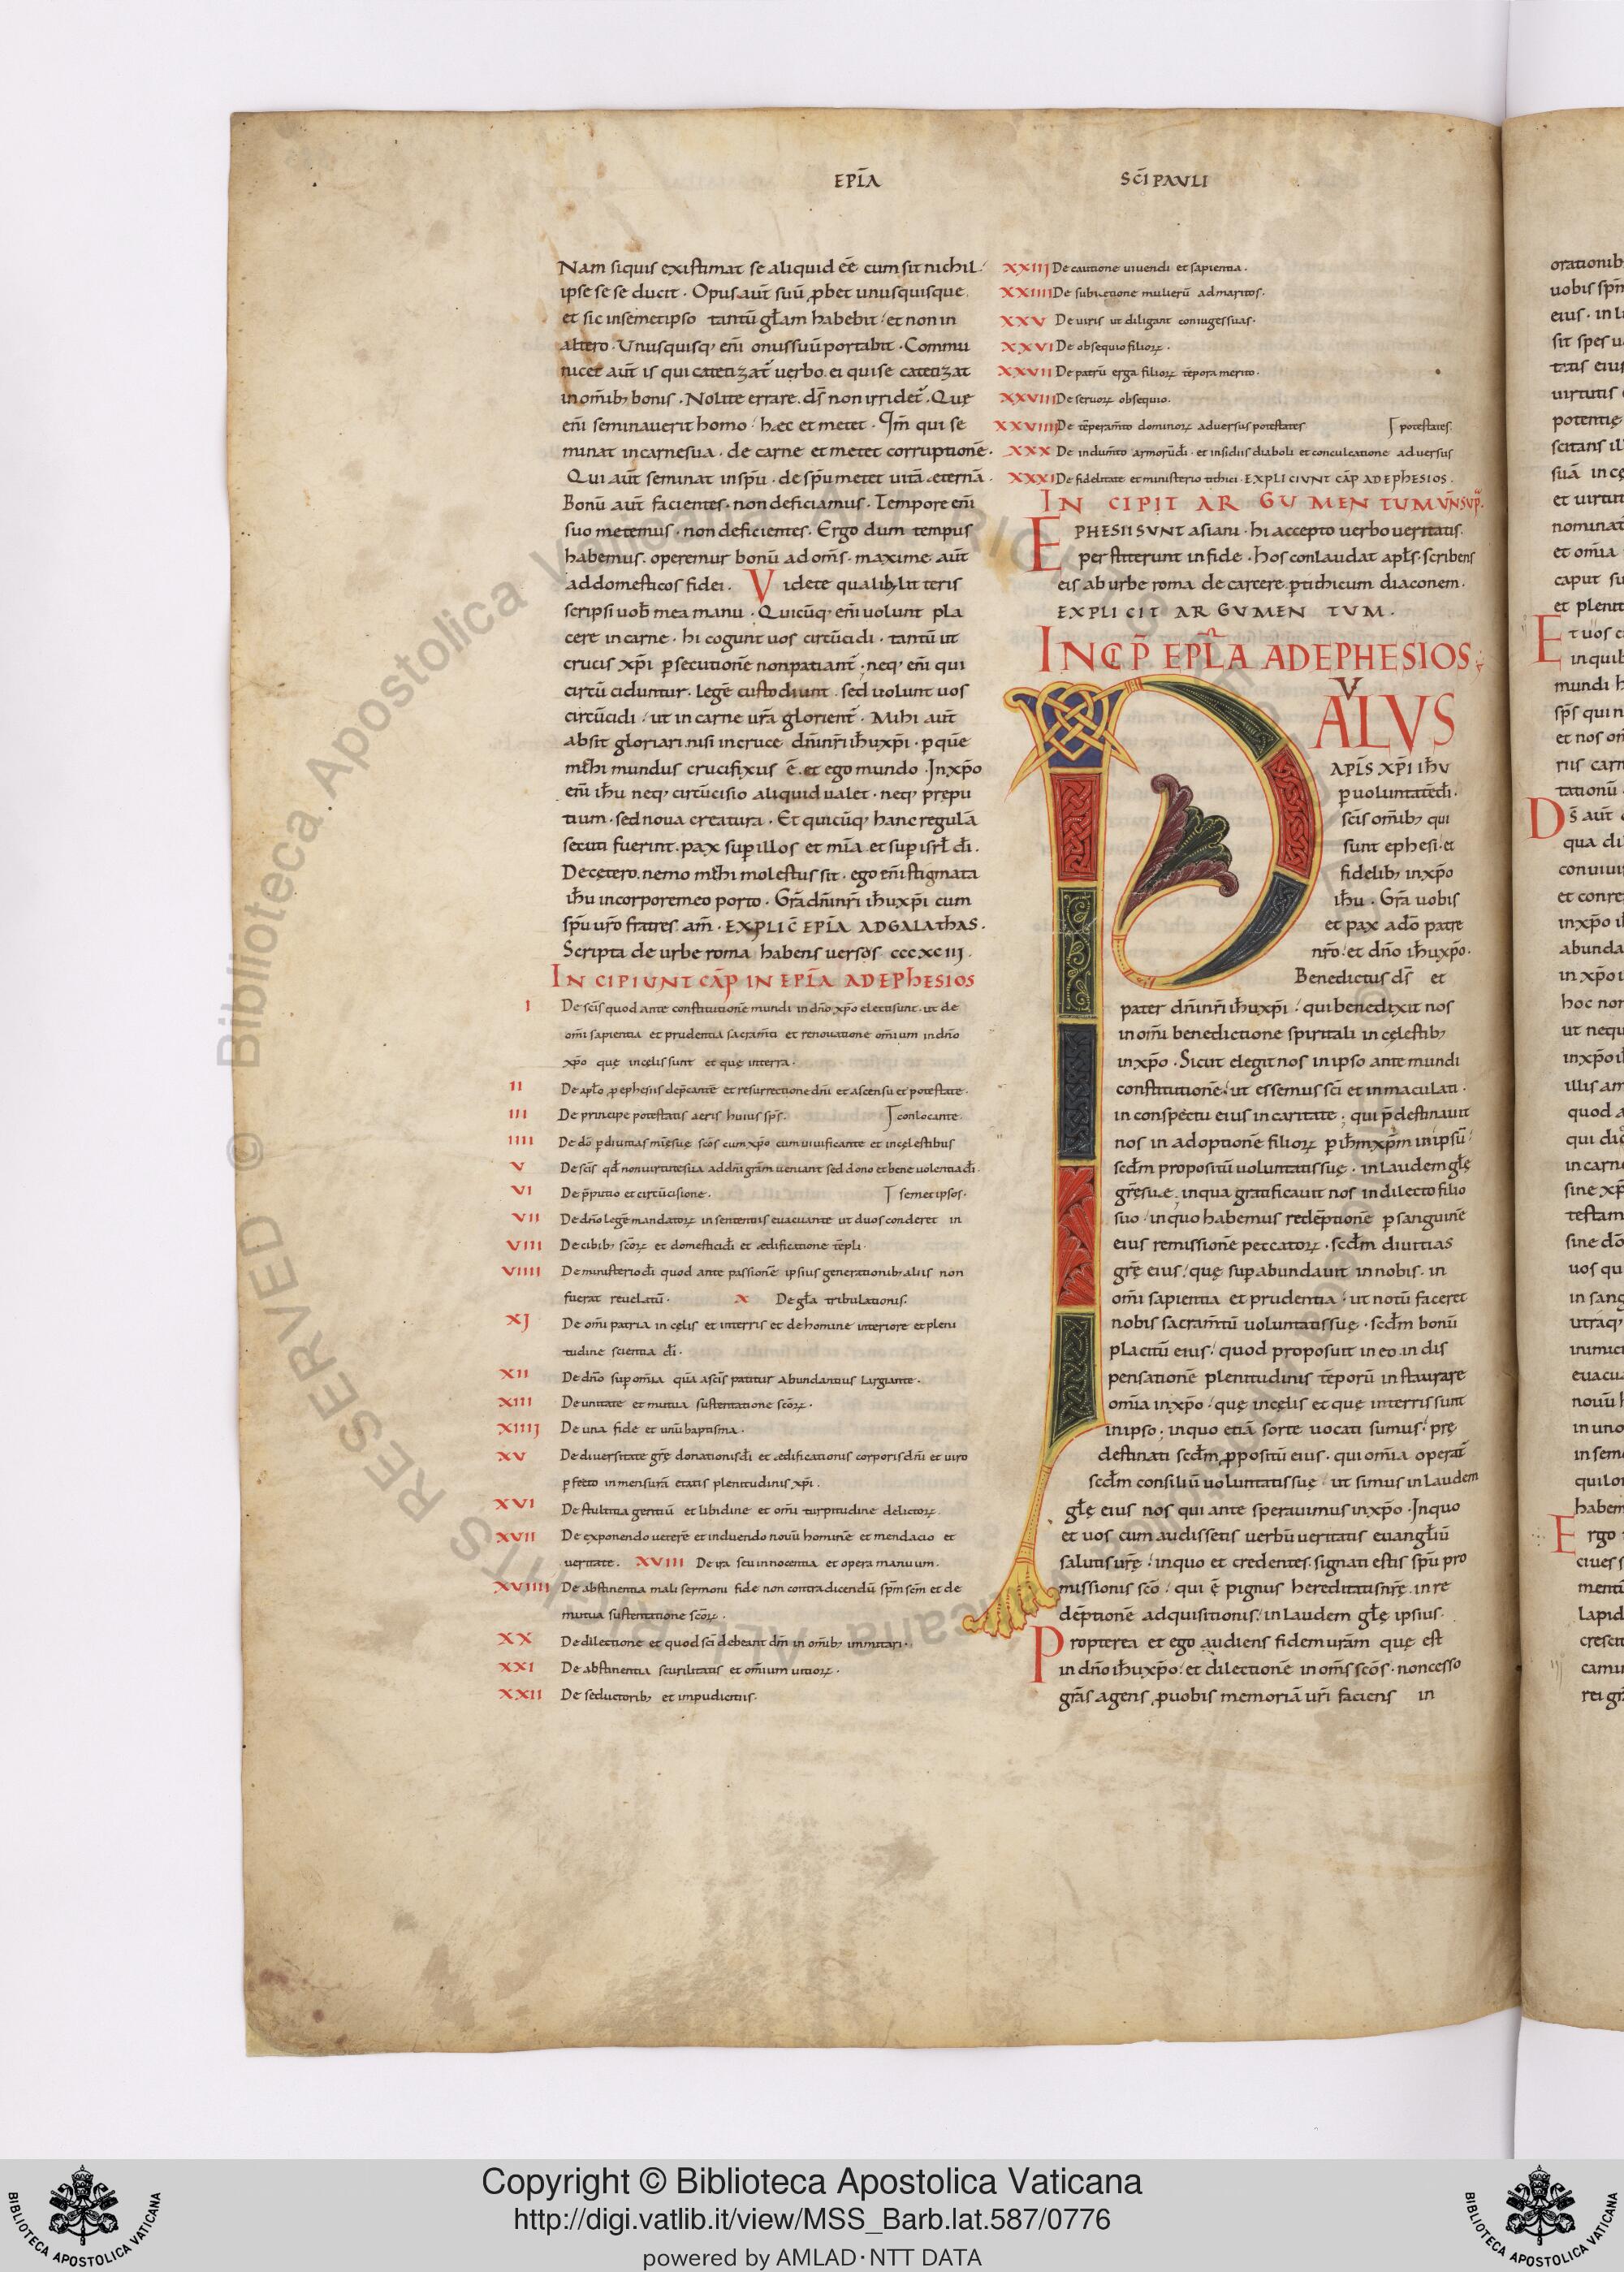 EPL̅A
SC̅I PAVLI
Nam siquis existimat se aliquid ee̅ cum sit nichil.
ipse se se ducit. Opus aut̅ suu̅ ꝓbet unusquisque
et sic insemetipso tantu̅ gl̅am habebit. et non in
altero. Unusquisq; eni̅ onussuu̅ portabit. Commu
nicet aut̅ is qui catetizat̅ uerbo. ei qui se catetizat
in om̅ib; bonis. Nolite errare. ds̅ non irridet̅. Quę
eni̅ seminauerit homo. hęc et metet. Qm̅ qui se
minat incarnesua. de carne et metet corruptione̅.
Qui aut̅ seminat in sp̅u. de sp̅u metet uita̅ eterna̅.
Bonu̅ aut̅ facientes. non deficiamus. Tempore eni̅
suo metemus. non deficientes. Ergo dum tempus
habemus. operemur bonu̅ ad om̅s. maxime aut̅
ad domesticos fidei. Videte qualib; lit teris
scripsi uob̅ mea manu. Quicu̅q; eni̅ uolunt pla
cere in carne. hi cogunt uos circu̅cidi. tantu̅ ut
crucis xp̅i ꝑsecutione̅ nonpatiant̅. neq; eni̅ qui
circu̅ciduntur. lege̅ custodiunt. sed uolunt uos
circu̅cidi. ut in carne ur̅a glorient̅. Mihi aut̅
absit gloriari. nisi in cruce dn̅i nr̅i ih̅u xp̅i. ꝑ que̅
michi mundus crucifixus e̅. et ego mundo. In xp̅o
eni̅ ih̅u neq; circu̅cisio aliquid ualet. neq; prepu
tium. sed noua creatura. Et quicu̅q; hanc regula̅
secuti fuerint. pax suꝑ illos et mi̅a. et suꝑ isrl̅ di̅.
Decętero. nemo michi molestus sit. ego eni̅ stigmata
ih̅u incorporemeo porto. Gr̅a dn̅i nr̅i ih̅u xp̅i cum
sp̅u ur̅o fratres. am̅. EXPLIC̅ EPL̅A ADGALAThAS.
Scripta de urbe roma habens versos cccxciij.
IN CIPIUNT CAP̅ IN EPL̅A ADEPhESIOS
I De sci̅s quod ante constitutione̅ mundi in dn̅o xp̅o electisunt. ut de
om̅i sapientia et prudentia sacram̅ti et renouatione om̅ium in dn̅o
xp̅o quę incęlis sunt et quę interra.
II De apl̅o ꝓ ephesiis dep̅cante̅ et resurrectione dn̅i et ascensu et potestate.
III De principe potestatis aeris huius sp̅s. conlocante.
IIII De do̅ ꝑ diuitias mi̅ęsuę sco̅s cum xp̅o cum uiuificante et incęlestibus
V De sci̅s qd̅ non uirtutesua ad dn̅i gra̅m ueniant sed dono et bene uolentia di̅.
VI De p̅putio et circu̅cisione. semetipsos.
VII De dn̅o lege̅ mandatoꝝ in sententiis euacuante ut duos conderet in
VIII De cibib; sc̅oꝝ et domesticidi̅ et ędificatione te̅pli.
VIIII De ministerio di̅ quod ante passione̅ ipsius generationib; aliis non
fuerat reuelatu̅. X De gl̅a tribulationis.
XJ De om̅i patria in cęlis et interris et de homine interiore et pleni
tudine scientia di̅.
XII De dn̅o suꝑ om̅ia qua̅ asci̅s patitus abundantius largiante.
XIII De unitate et mutua sustentatione sc̅oꝝ.
XIIIJ De una fide et unu̅ baptisma.
XV De diuersitate gr̅ę donationisdi̅ et ędificationis corporis dn̅i et uiro
ꝑfecto in mensura̅ etatis plenitudinis xp̅i.
XVI De stultitia gentiu̅ et libidine et om̅i turpitudine delictoꝝ.
XVII De exponendo uetere̅ et induendo nouu̅ homine̅ et mendacio et
ueritate. XVIII De ira seu innocentia et opera manuum.
XVIIII De abstinentia mali sermoni fide non contradicendu̅ sp̅m sc̅m et de
mutua sustentatione sc̅oꝝ.
XX De dilectione et quod sci̅ debeant dm̅ in om̅ib; immitari.
XXI De abstinentia scurilitatis et om̅ium uitioꝝ.
XXII De seductorib; et impudicitiis.
XXIIJ De cautione uiuendi et sapientia.
XXIIII De subiectione mulieru̅ admaritos.
XXV De uiris ut diligant coniugessuas.
XXVI De obsequio filioꝝ.
XXVII De patru̅ erga filioꝝ te̅pora merito.
XXVIII De seruoꝝ obsequio.
XXVIIII De te̅peram̅to dominoꝝ aduersus potestates potestates.
XXX De indum̅to armoru̅di̅. et insidiis diaboli et conculcatione aduersus
XXXI De fidelitate et ministerio tithici. EXPLICIVNT CAP̅ ADEPHESIOS.
IN CIPIT AR GU MEN TUM UN̅SUP̅.
EPHESII SVNT asiani. hi accepto uerbo ueritatis.
perstiterunt in fide. hos conlaudat apl̅s. scribens
eis ab urbe roma de carcere. ꝑ tithicum diaconem.
EXPLICIT AR GUMEN TUM.
INCP̅ EPL̅A ADEPHESIOS;
PAVLVS
APL̅S XP̅I IH̅V
ꝑ uoluntate̅di̅.
sci̅s om̅ib; qui
sunt ephesi. et
fidelib; in xp̅o
ih̅u. Gr̅a uobis
et pax ado̅ patre
nr̅o. et dn̅o ih̅u xp̅o.
Benedictus ds̅ et
pater dn̅i nr̅i ih̅u xp̅i. qui benedixit nos
in om̅i benedictione spiritali in cęlestib;
in xp̅o. Sicut elegit nos in ipso ante mundi
constitutione̅. ut essemus sci̅ et inmaculati.
in conspectu eius in caritate; qui p̅destinauit
nos in adoptione̅ filioꝝ ꝑ ih̅m xp̅m in ipsu̅.
scd̅m propositu̅ uoluntatissuę. in laudem gl̅ę
gr̅ęsuę. inqua gratificauit nos in dilecto filio
suo. in quo habemus rede̅ptione̅ ꝑ sanguine̅
eius remissione̅ peccatoꝝ. scd̅m diuitias
gr̅ę eius. quę suꝑabundauit in nobis. in
om̅i sapientia et prudentia. ut notu̅ faceret
nobis sacram̅tu̅ uoluntatissuę. scd̅m bonu̅
placitu̅ eius. quod proposuit in eo. in dis
pensatione̅ plenitudinis te̅poru̅ instaurare
om̅ia in xp̅o. quę incęlis et quę interris sunt
inipso; inquo etia̅ sorte uocati sumus. prę
destinati scd̅m ꝓpositu̅ eius. qui om̅ia operat̅
scd̅m consiliu̅ uoluntatissuę. ut simus in laudem
gl̅ę eius nos qui ante sperauimus in xp̅o. Inquo
et uos cum audissetis uerbu̅ ueritatis euangl̅iu̅
salutis ur̅ę. inquo et credentes. signati estis sp̅u pro
missionis sc̅o. qui e̅ pignus hereditatisnr̅ę. in re
de̅ptione̅ adquisitionis. in laudem gl̅ę ipsius.
Propterea et ego audiens fidem ura̅m quę est
in dn̅o ih̅u xp̅o. et dilectione̅ in om̅s sco̅s. noncesso
gra̅s agens ꝓ uobis memoria̅ uri̅ faciens in
Copyright © Biblioteca Apostolica Vaticana
http://digi.vatlib.it/view/MSS_Barb.lat.587/0776
powered by AMLAD·NTT DATA
BIBLIOTECA APOSTOLICA VATICANA
BIBLIOTECA APOSTOLICA VATICANA